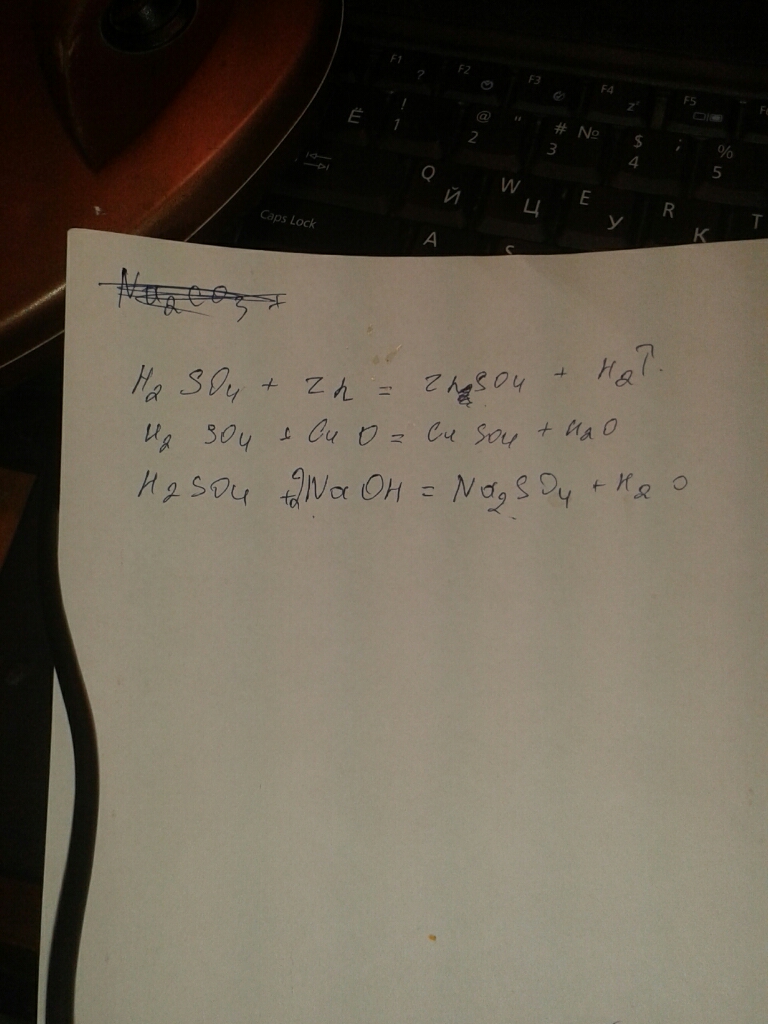 F1 ? F2 F3 F4 z' F5
Ё ! 1 @ " 2 # № 3 $ ; 4 % 5
Q Й W Ц E У R К T
Caps Lock A S
Na2CO3 +
H2 SO4 + Zn = ZnSO4 + H2↑.
H2 SO4 + Cu O = Cu SO4 + H2O
H2SO4 +2NaOH = Na2SO4 + H2O